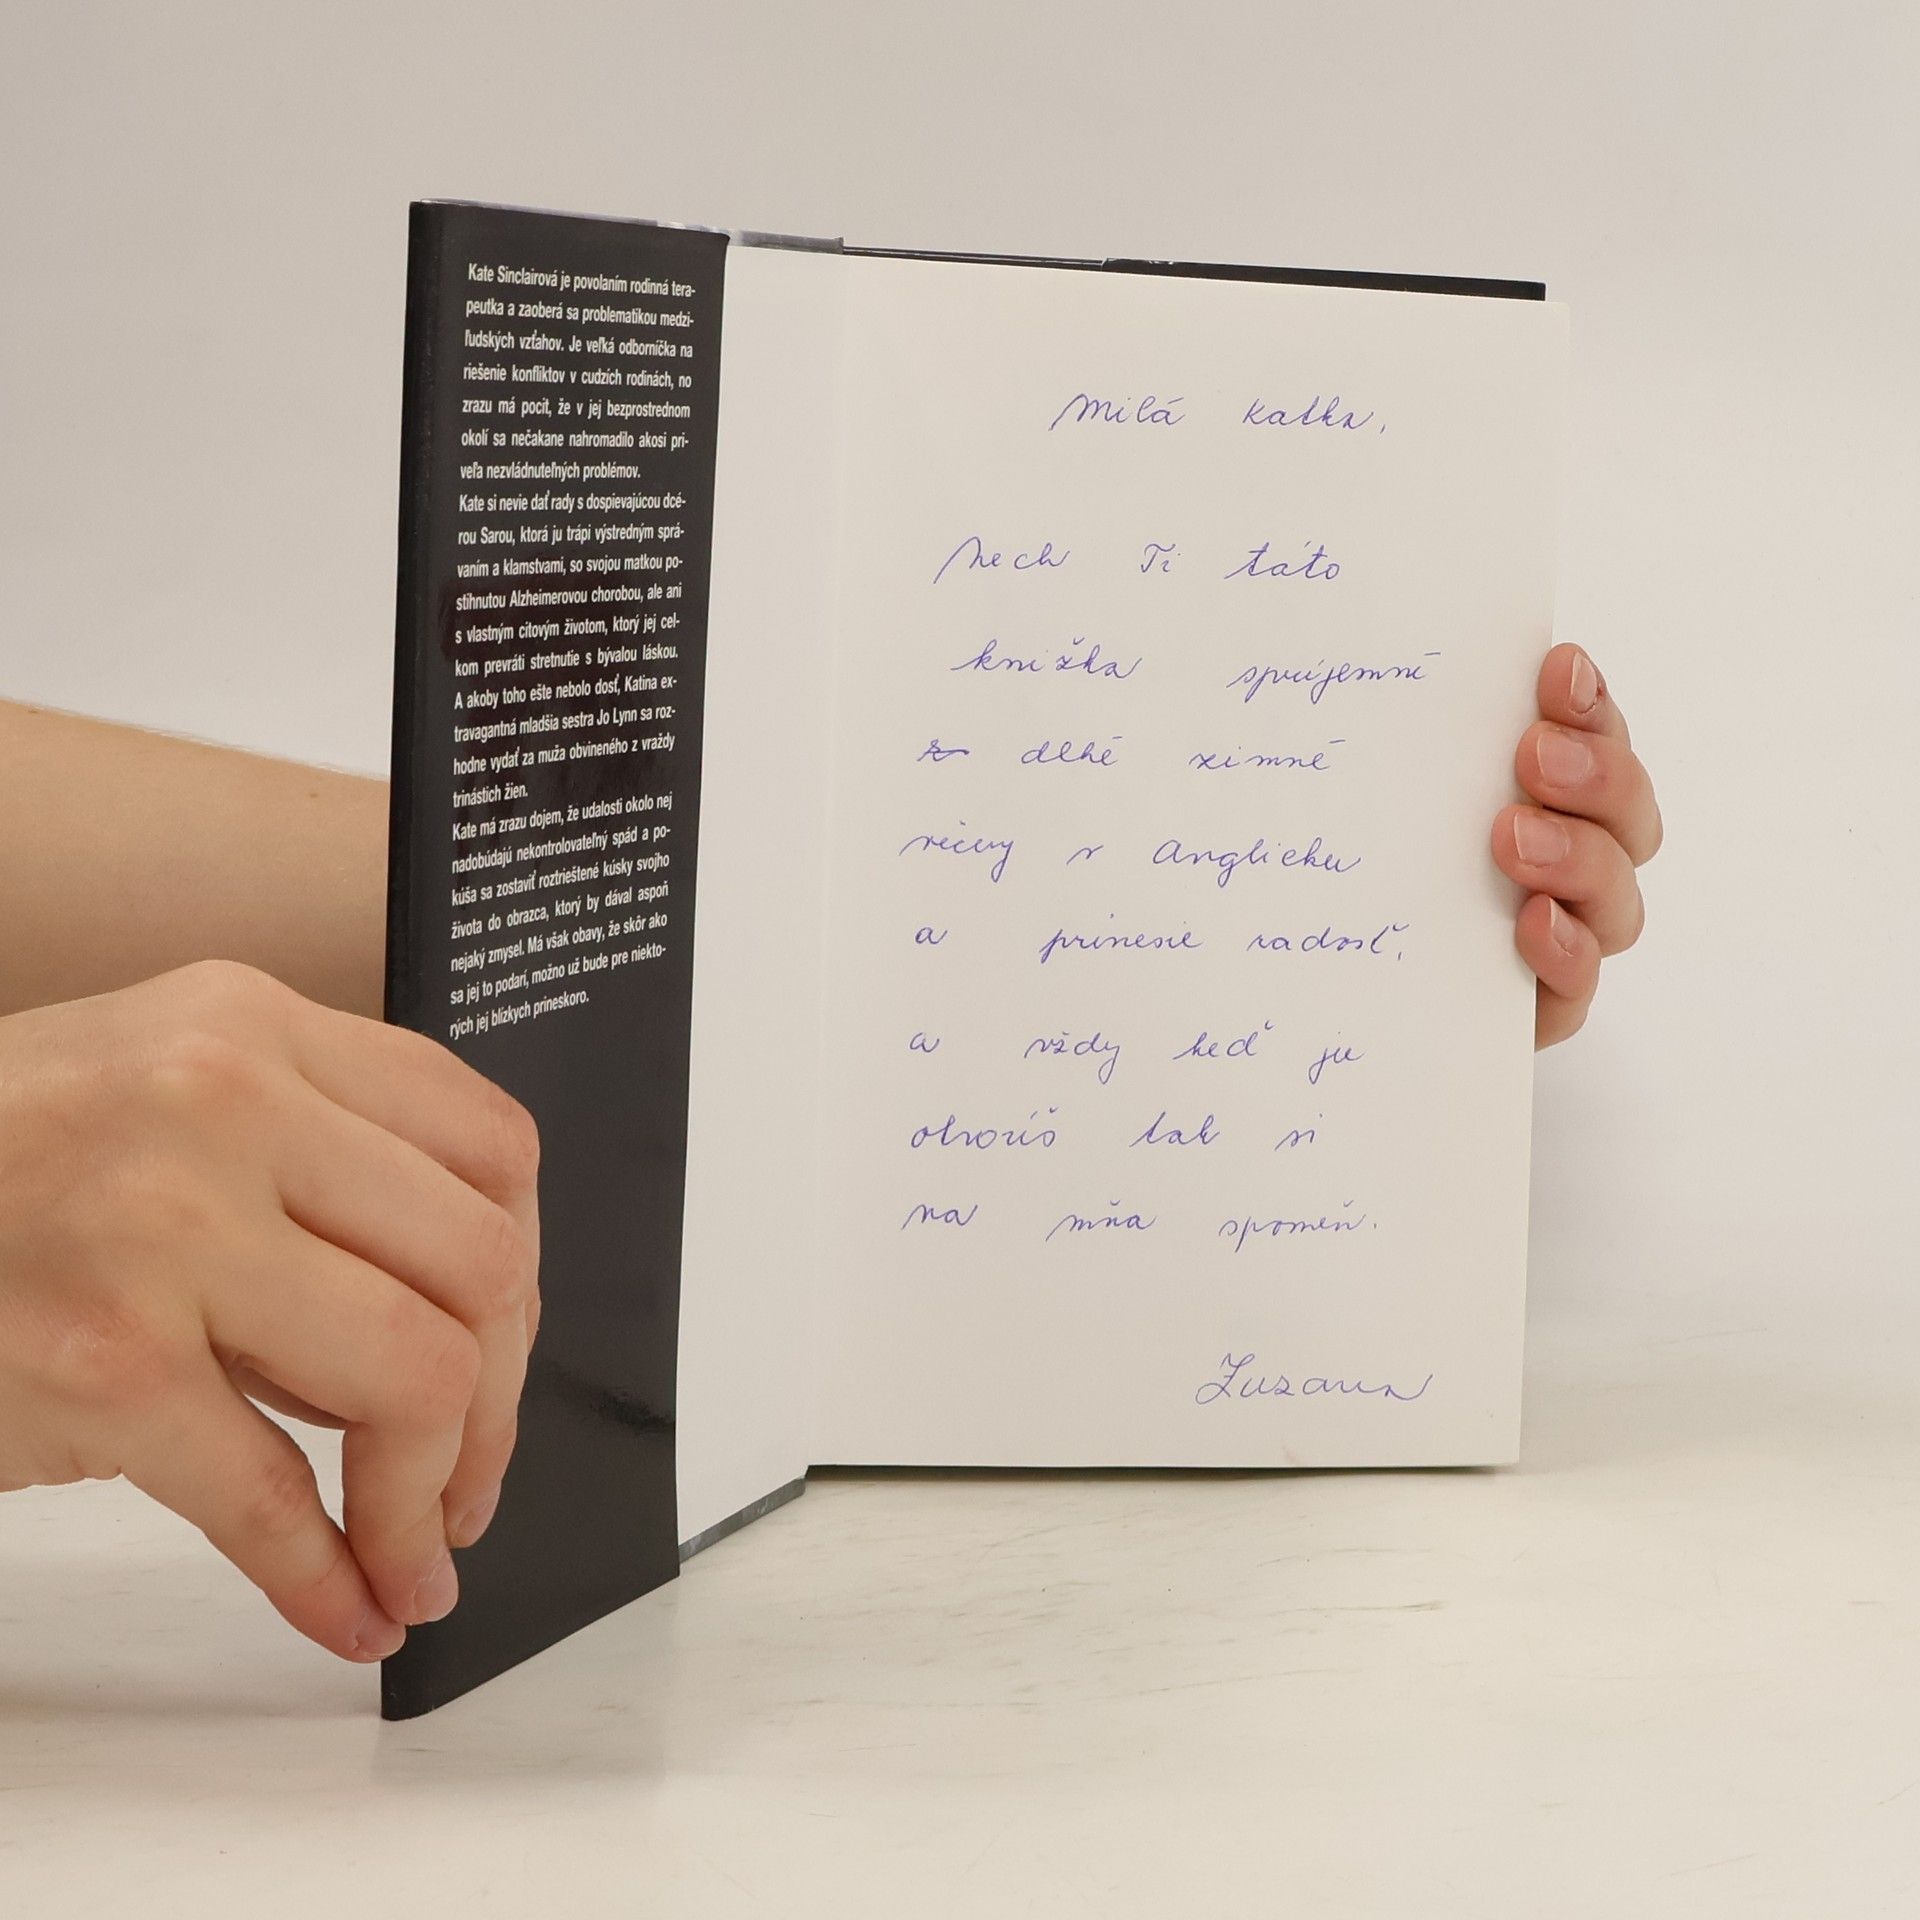 Kate Sinclairová je povolaním rodinná tera-
peutka a zaoberá sa problematikou medzi-
ľudských vzťahov. Je veľká odborníčka na
riešenie konfliktov v cudzích rodinách, no
zrazu má pocit, že v jej bezprostrednom
okolí sa nečakane nahromadilo akosi pri-
veľa nezvládnuteľných problémov.
Kate si nevie dať rady s dospievajúcou dcé-
rou Sarou, ktorá ju trápi výstredným sprá-
vaním a klamstvami, so svojou matkou po-
stihnutou Alzheimerovou chorobou, ale ani
s vlastným citovým životom, ktorý jej cel-
kom prevráti stretnutie s bývalou láskou.
A akoby toho ešte nebolo dosť, Katina ex-
travagantná mladšia sestra Jo Lynn sa roz-
hodne vydať za muža obvineného z vraždy
trinástich žien.
Kate má zrazu dojem, že udalosti okolo nej
nadobúdajú nekontrolovateľný spád a po-
kúša sa zostaviť roztrieštené kúsky svojho
života do obrazca, ktorý by dával aspoň
nejaký zmysel. Má však obavy, že skôr ako
sa jej to podarí, možno už bude pre niekto-
rých jej blízkych prineskoro.
Milá Katka,
Nech Ti táto
knižka spríjemní
dlhé zimné
večery v Anglicku
a prinesie radosť,
a vždy keď ju
otvoríš tak si
na mňa spomeň.
Zuzana